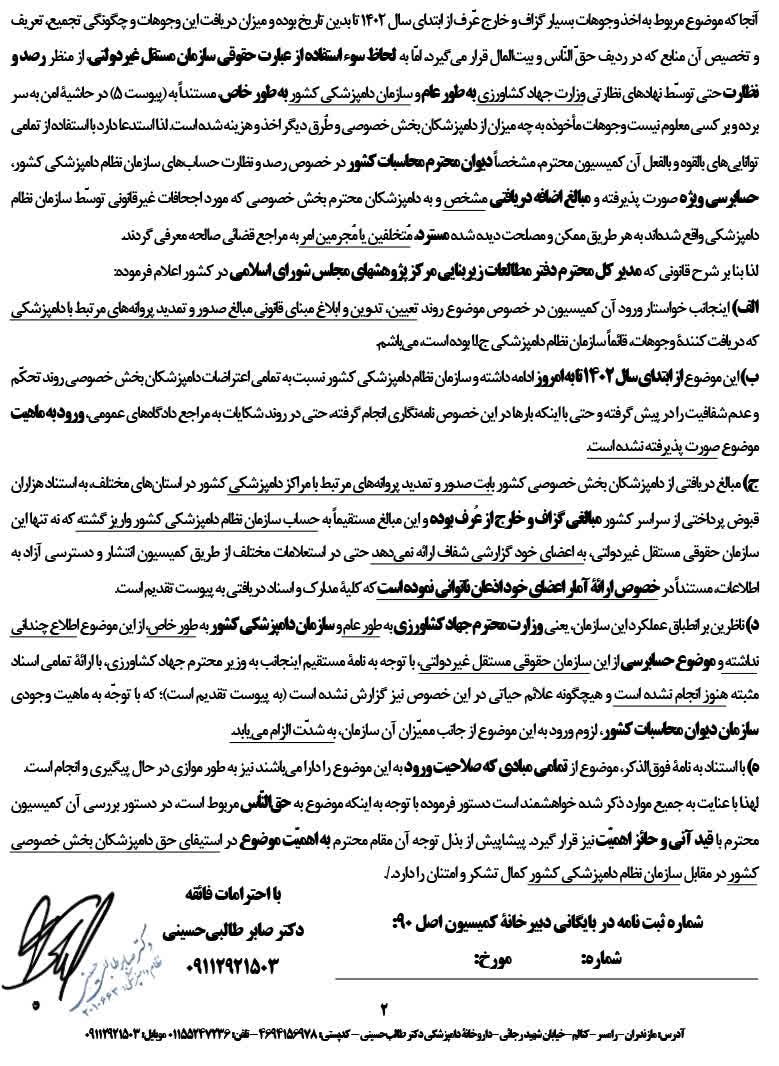 آنجا که موضوع مربوط به اخذ وجوهات بسیار گزاف و خارج عُرف از ابتدای سال ۱۴۰۲ تا بدین تاریخ بوده و میزان دریافت این وجوهات و چگونگی تجمیع، تعریف
و تخصیص آن منابع که در ردیف حقّ النّاس و بیت‌المال قرار می‌گیرد. امّا به لحاظ سوء استفاده از عبارت حقوقی سازمان مستقل غیردولتی، از منظر رصد و
نظارت حتی توسّط نهادهای نظارتی وزارت جهاد کشاورزی به طور عام و سازمان دامپزشکی کشور به طور خاص، مستنداً به (پیوست ۵) در حاشیۀ امن به سر
برده و بر کسی معلوم نیست وجوهات مأخوذه به چه میزان از دامپزشکان بخش خصوصی و طُرق دیگر اخذ و هزینه شده است. لذا استدعا دارد با استفاده از تمامی
توانایی‌های بالقوه و بالفعل آن کمیسیون محترم، مشخصاً دیوان محترم محاسبات کشور در خصوص رصد و نظارت حساب‌های سازمان نظام دامپزشکی کشور،
حسابرسی ویژه صورت پذیرفته و مبالغ اضافه دریافتی مشخص و به دامپزشکان محترم بخش خصوصی که مورد اجحافات غیرقانونی توسّط سازمان نظام
دامپزشکی واقع شده‌اند به هر طریق ممکن و مصلحت دیده شده مسترد، مُتخلفین یا مُجرمین امر به مراجع قضائی صالحه معرفی گردند.
لذا بنا بر شرح قانونی که مدیر کل محترم دفتر مطالعات زیربنایی مرکز پژوهشهای مجلس شورای اسلامی در کشور اعلام فرموده:
الف) اینجانب خواستار ورود آن کمیسیون در خصوص موضوع روند تعیین، تدوین و ابلاغ مبنای قانونی مبالغ صدور و تمدید پروانه‌های مرتبط با دامپزشکی
که دریافت کنندۀ وجوهات، قائماً سازمان نظام دامپزشکی ج.ا.ا بوده است، می‌باشم.
ب) این موضوع از ابتدای سال ۱۴۰۲ تا به امروز ادامه داشته و سازمان نظام دامپزشکی کشور نسبت به تمامی اعتراضات دامپزشکان بخش خصوصی روند تحکّم
و عدم شفافیت را در پیش گرفته و حتی با اینکه بارها در این خصوص نامه‌نگاری انجام گرفته، حتی در روند شکایات به مراجع دادگاه‌های عمومی، ورود به ماهیت
موضوع صورت پذیرفته نشده است.
ج) مبالغ دریافتی از دامپزشکان بخش خصوصی کشور بابت صدور و تمدید پروانه‌های مرتبط با مراکز دامپزشکی کشور در استان‌های مختلف، به استناد هزاران
قبوض پرداختی از سراسر کشور مبالغی گزاف و خارج از عُرف بوده و این مبالغ مستقیماً به حساب سازمان نظام دامپزشکی کشور واریز گشته که نه تنها این
سازمان حقوقی مستقل غیردولتی، به اعضای خود گزارشی شفاف ارائه نمی‌دهد حتی در استعلامات مختلف از طریق کمیسیون انتشار و دسترسی آزاد به
اطلاعات، مستنداً در خصوص ارائۀ آمار اعضای خود اذعان ناتوانی نموده است که کلیۀ مدارک و اسناد دریافتی به پیوست تقدیم است.
د) ناظرین بر انطباق عملکرد این سازمان، یعنی وزارت محترم جهاد کشاورزی به طور عام و سازمان دامپزشکی کشور به طور خاص، از این موضوع اطلاع چندانی
نداشته و موضوع حسابرسی از این سازمان حقوقی مستقل غیردولتی، با توجه به نامۀ مستقیم اینجانب به وزیر محترم جهاد کشاورزی، با ارائۀ تمامی اسناد
مثبته هنوز انجام نشده است و هیچگونه علائم حیاتی در این خصوص نیز گزارش نشده است (به پیوست تقدیم است)؛ که با توجّه به ماهیت وجودی
سازمان دیوان محاسبات کشور، لزوم ورود به این موضوع از جانب ممیّزان آن سازمان، به شدّت الزام می‌یابد.
ه) با استناد به نامۀ فوق‌الذکر، موضوع از تمامی مبادی که صلاحیت ورود به این موضوع را دارا می‌باشند نیز به طور موازی در حال پیگیری و انجام است.
لهذا با عنایت به جمیع موارد ذکر شده خواهشمند است دستور فرموده با توجه به اینکه موضوع به حقّ‌النّاس مربوط است، در دستور بررسی آن کمیسیون
محترم با قید آنی و حائز اهمیّت نیز قرار گیرد. پیشاپیش از بذل توجه آن مقام محترم به اهمیّت موضوع در استیفای حق دامپزشکان بخش خصوصی
کشور در مقابل سازمان نظام دامپزشکی کشور کمال تشکر و امتنان را دارد./.
با احترامات فائقه
دکتر صابر طالبی‌حسینی
۰۹۱۱۲۹۲۱۵۰۳
شماره ثبت نامه در بایگانی دبیرخانۀ کمیسیون اصل ۹۰:
شماره: مورخ:
دکتر صابر طالبی حسینی
۲
آدرس: مازندران – رامسر – کتالم – خیابان شهید رجائی – داروخانۀ دامپزشکی دکتر طالب‌حسینی – کدپستی: ۴۶۹۴۱۵۶۹۷۸ – تلفن: ۰۱۱۵۵۲۴۷۲۳۶ موبایل: ۰۹۱۱۲۹۲۱۵۰۳